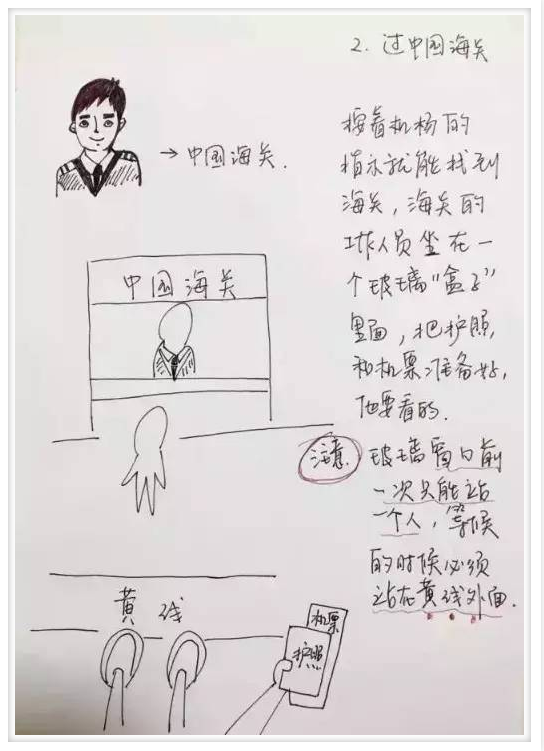 2. 过中国海关
→中国海关.
按着机场的
指示就能找到
海关, 海关的
工作人员坐在一
个玻璃“盒子”
里面, 把护照
和机票准备好,
他要看的.
中国海关
注意 玻璃窗口前
一次只能站
一个人, 等候
的时候必须
站在黄线外面.
黄线
机票
护照